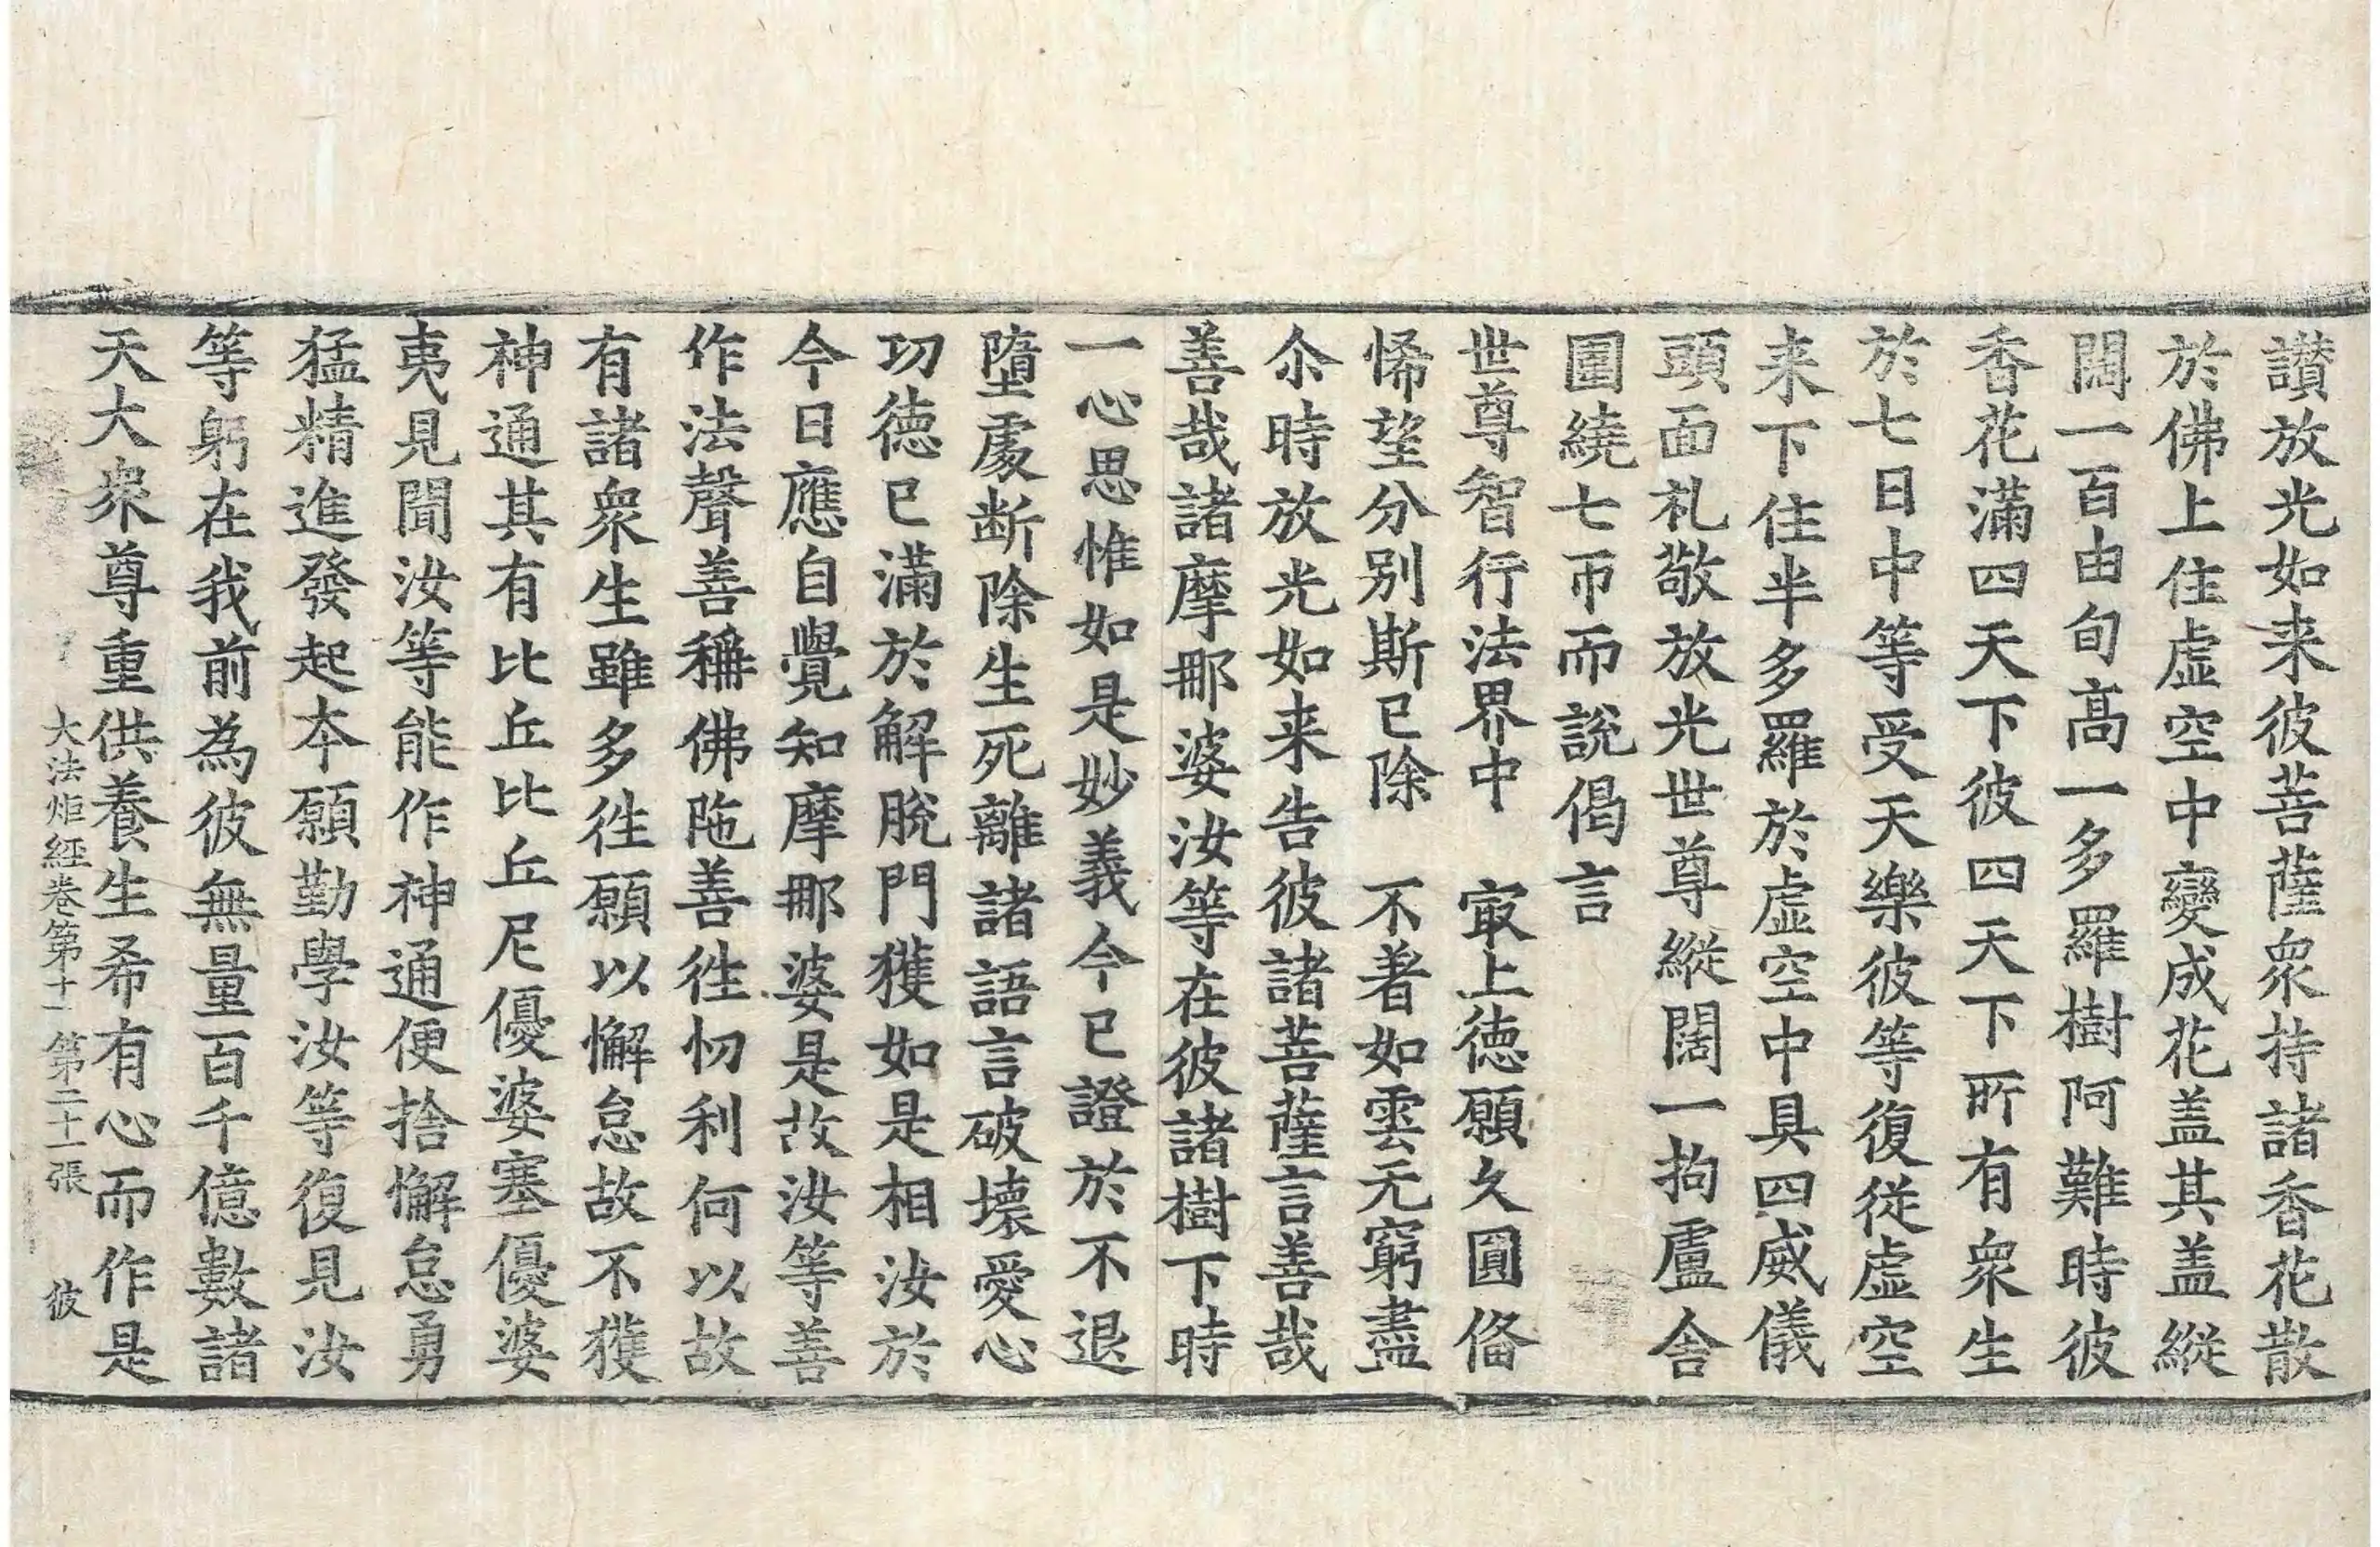 讃放光如来彼菩薩衆持諸香花散
於佛上住虚空中變成花盖其盖縱
闊一百由旬高一多羅樹阿難時彼
香花滿四天下彼四天下所有衆生
於七日中等受天樂彼等復従虚空
来下住半多羅於虚空中具四威儀
頭面礼敬放光世尊縱闊一拘盧舎
圍繞七帀而說偈言
世尊智行法界中　㝡上徳願久圓俻
悕望分別斯已除　不著如雲无窮盡
尒時放光如来告彼諸菩薩言善哉
善哉諸摩那婆汝等在彼諸樹下時
一心思惟如是妙義今已證於不退
墮處断除生死離諸語言破壞愛心
功徳已滿於解脫門獲如是相汝於
今日應自覺知摩那婆是故汝等善
作法聲善稱佛陁善徃忉利何以故
有諸衆生雖多徃願以懈怠故不獲
神通其有比丘比丘尼優婆塞優婆
夷見聞汝等能作神通便捨懈怠勇
猛精進發起夲願勤學汝等復見汝
等躬在我前為彼無量百千億數諸
天大衆尊重供養生希有心而作是
大法炬経卷第十一　第二十一張　彼